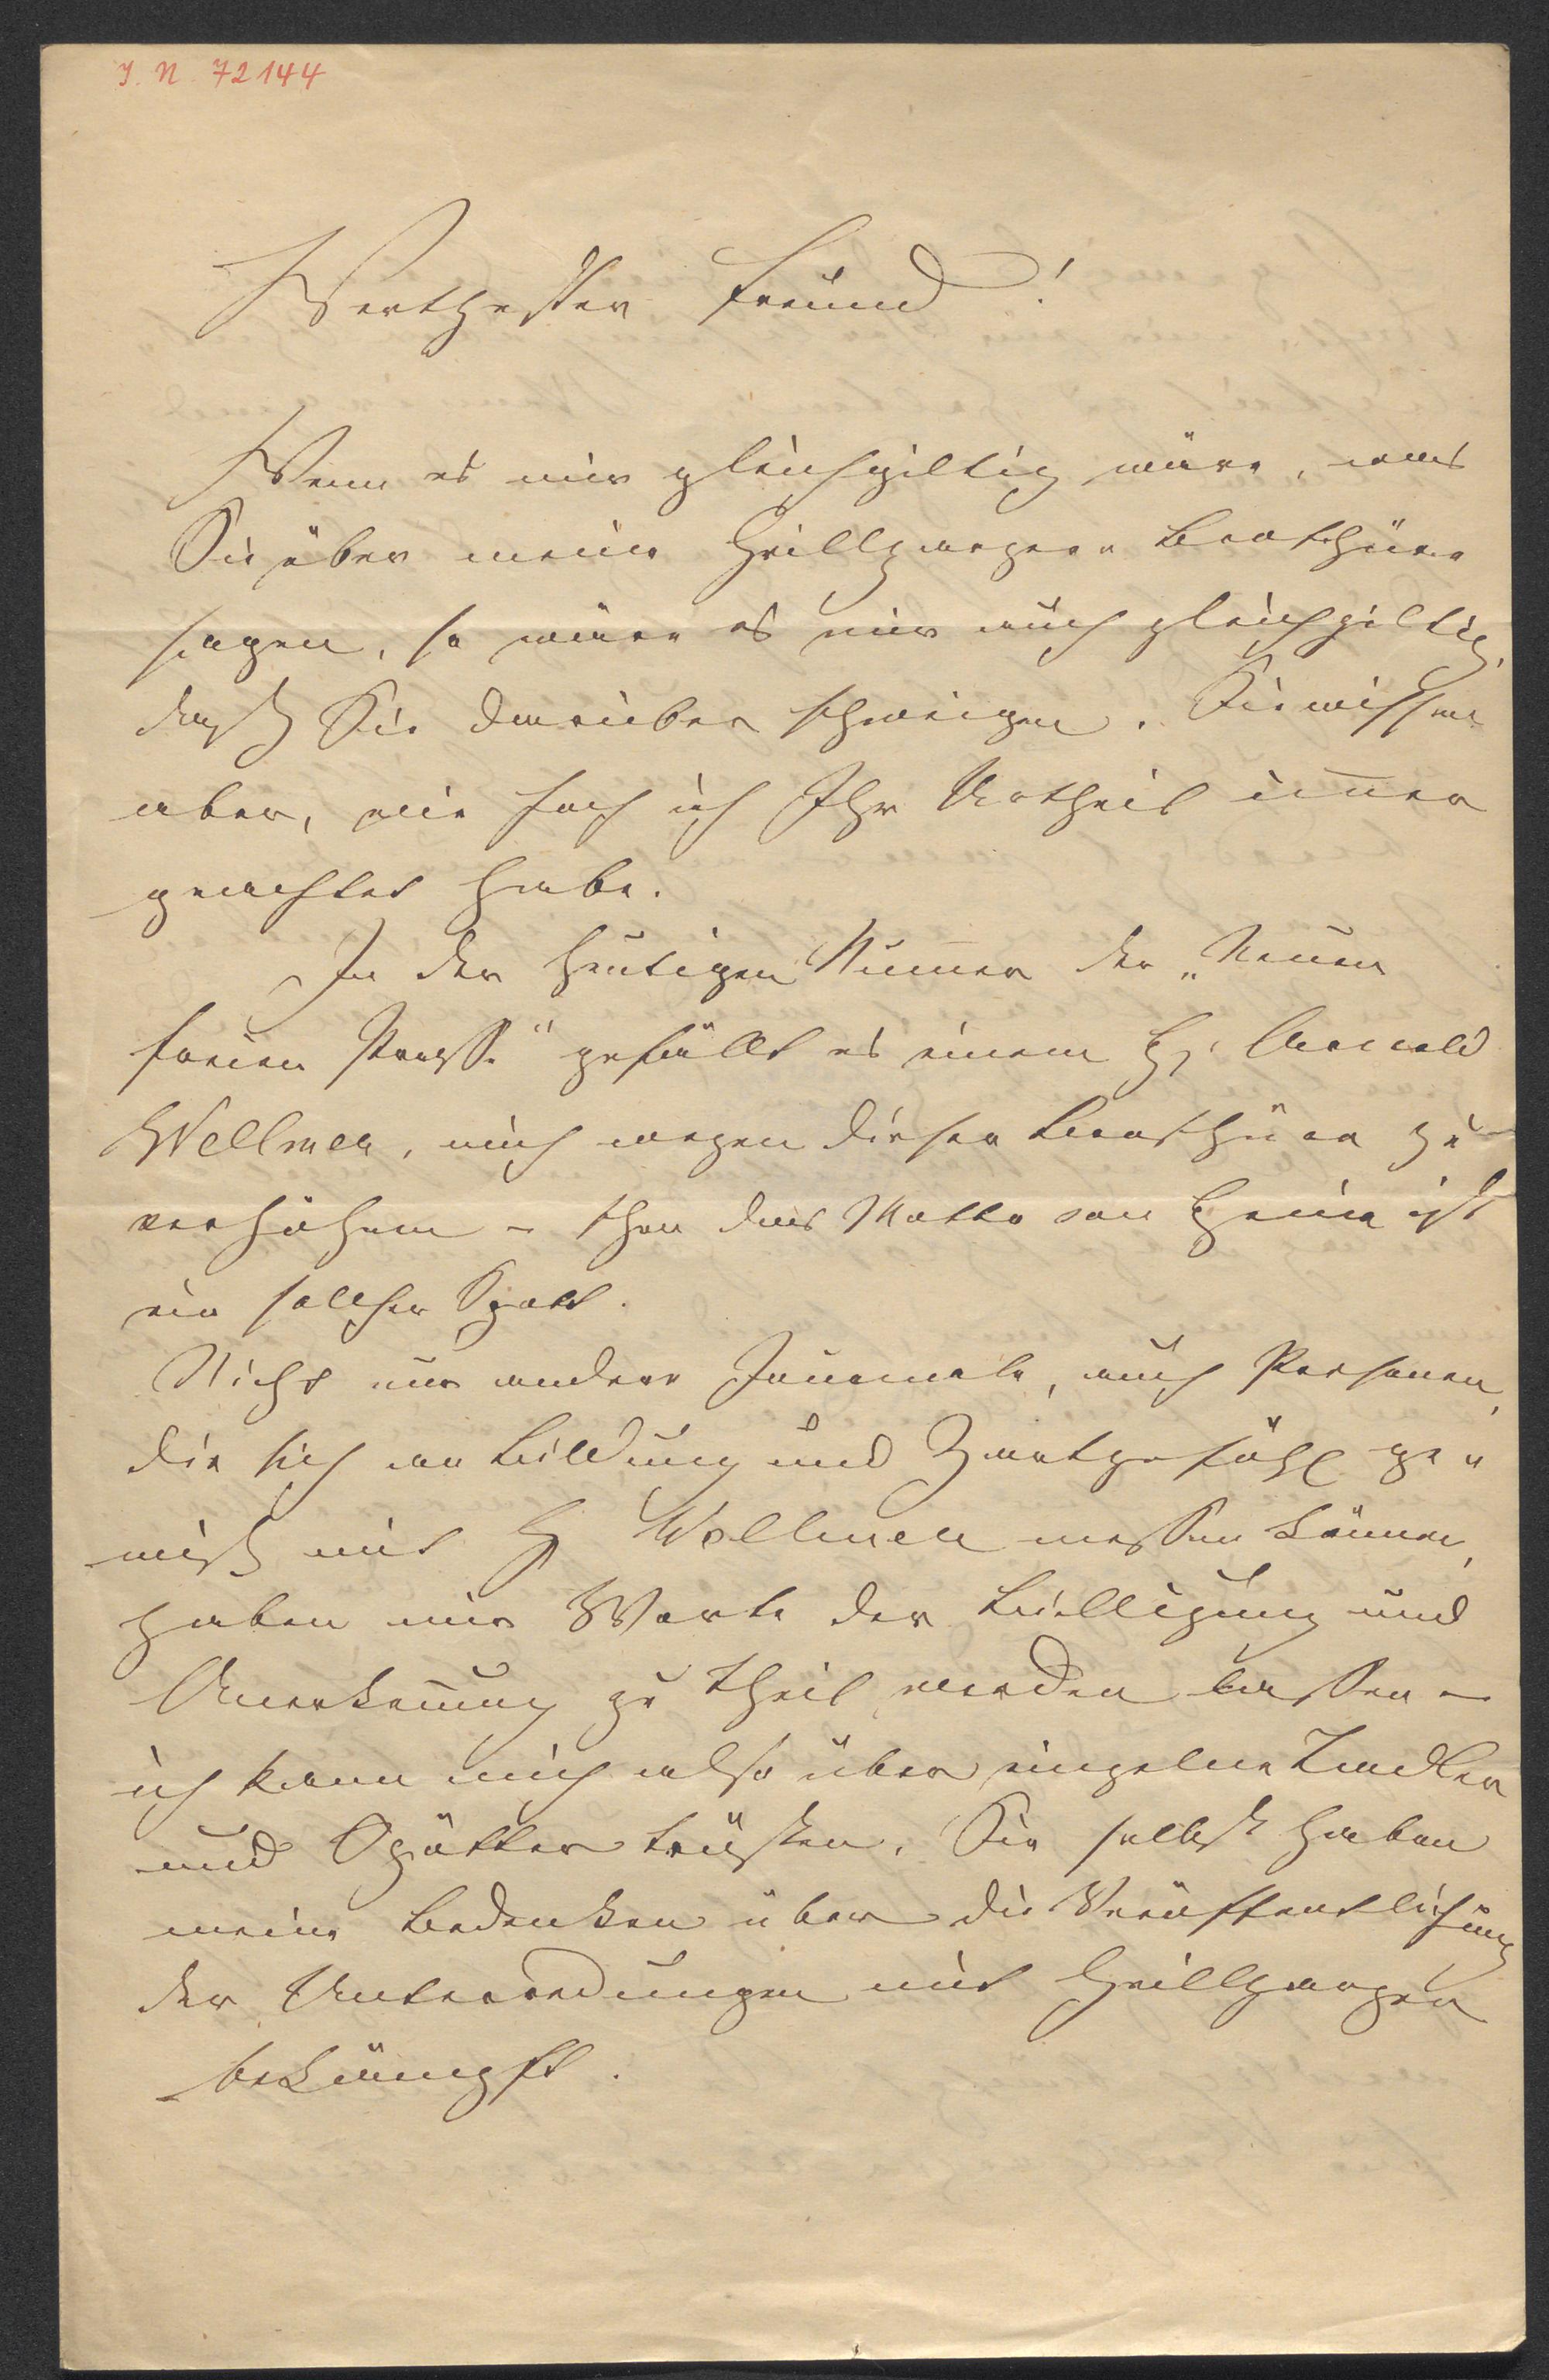 I. N. 72144
Werthester Freund!
Wenn es mir gleichgiltig wäre, was
Sie über meine Grillparzer-Broschüre
sagen, so wäre es mir auch gleichgiltig,
daß Sie darüber schweigen. Sie wissen
aber, wie hoch ich Ihr Urtheil im̅er
geachtet habe.
In der heutigen Num̅er der „Neuen
freien Presse" gefällt es einem H. Arnold
Wellmer, mich wegen dieser Broschüre zu
verhöhnen – schon das Motto von Heine ist
ein solcher Spott.
Nicht nur andere Journale, auch Personen,
die sich an Bildung und Zartgefühl ge-
wiß mit H Wellmer messen können,
haben mir Worte der Billigung und
Anerken̅ung zu Theil werden lassen –
ich kann mich also über einzelne Tadler
und Spötter trösten. Sie selbst haben
meine Bedenken über die Veröffentlichung
der Unterredungen mit Grillparzer
bekämpft.